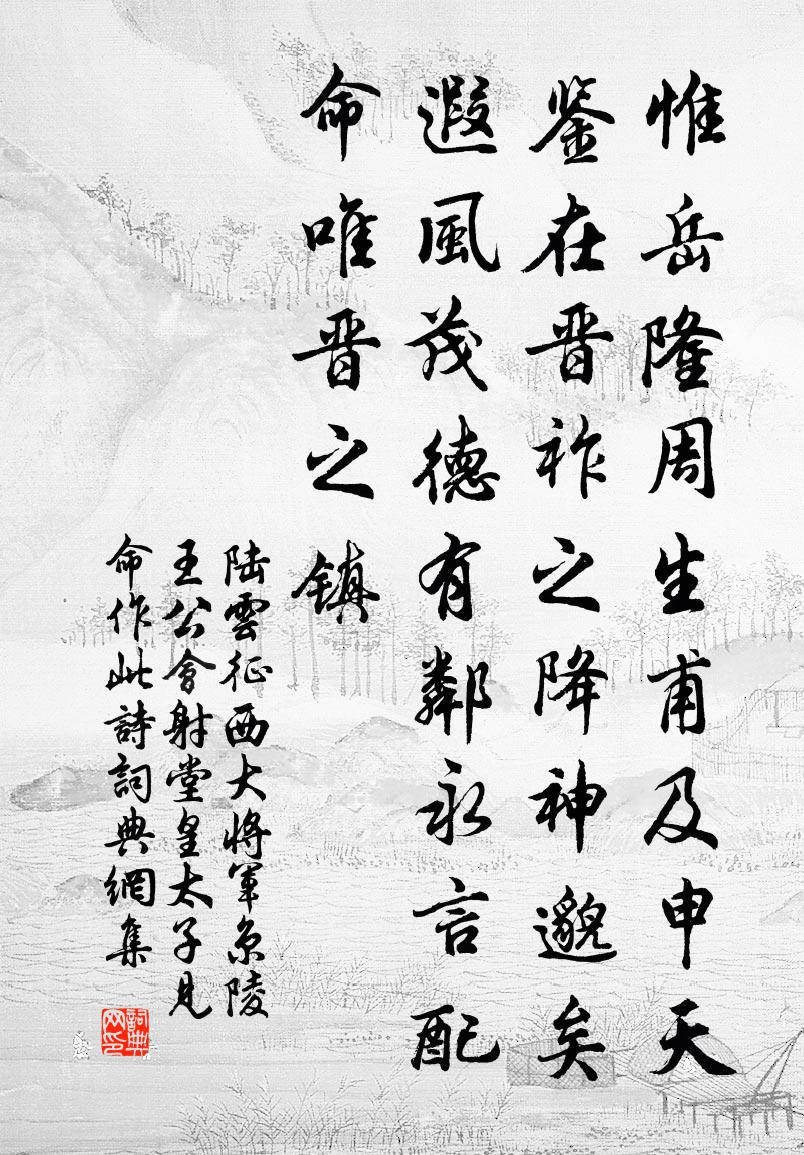 惟岳隆周生甫及申天
鉴在晋祚之降神邈矣
遐風茂德有鄰永言配
命唯晋之镇
陆雲征西大将軍京陵
王公會射堂皇太子見
命作此詩詞典網集
詞典网印